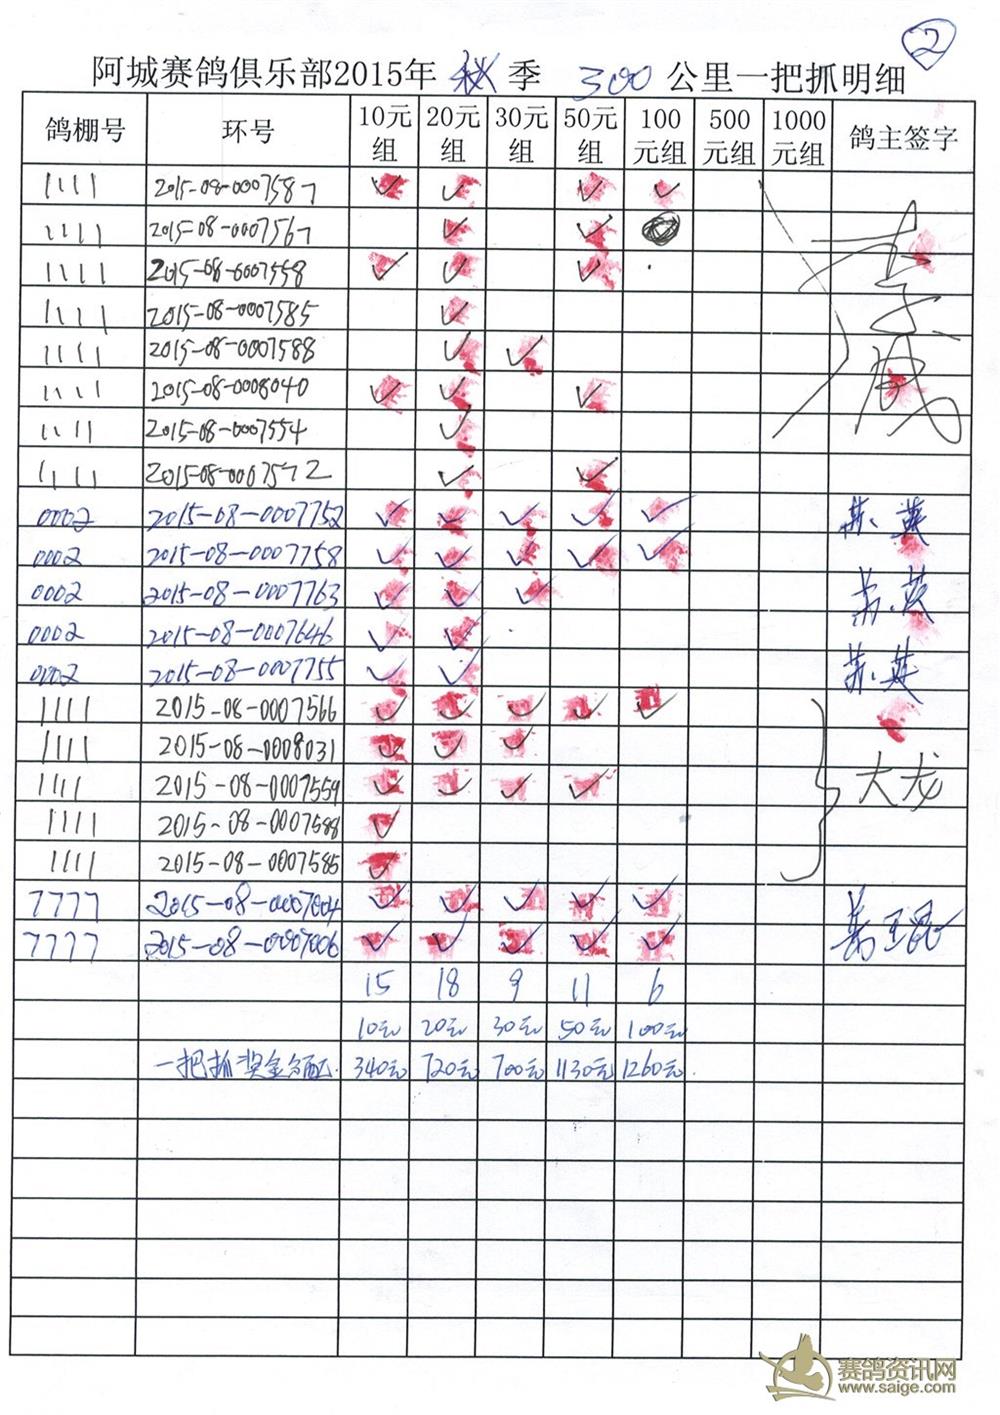 ②
阿城赛鸽俱乐部2015年 秋 季 300 公里一把抓明细
鸽棚号 环号 10元组 20元组 30元组 50元组 100元组 500元组 1000元组 鸽主签字
1111 2015-08-0007587 ✓ ✓ ✓ ✓
1111 2015-08-0007567 ✓ ✓
1111 2015-08-0007558 ✓ ✓ ✓
1111 2015-08-0007585 ✓
1111 2015-08-0007588 ✓ ✓
1111 2015-08-0008040 ✓ ✓ ✓
1111 2015-08-0007554 ✓
1111 2015-08-0007572 ✓ ✓
0002 2015-08-0007752 ✓ ✓ ✓ ✓ ✓
0002 2015-08-0007758 ✓ ✓ ✓ ✓ ✓
0002 2015-08-0007763 ✓ ✓ ✓
0002 2015-08-0007646 ✓ ✓
0002 2015-08-0007755 ✓ ✓
1111 2015-08-0007566 ✓ ✓ ✓ ✓ ✓
1111 2015-08-0008031 ✓ ✓ ✓
1111 2015-08-0007559 ✓ ✓ ✓ ✓ 大龙
1111 2015-08-0007588 ✓
1111 2015-08-0007585 ✓
7777 2015-08-0007004 ✓ ✓ ✓ ✓ ✓
7777 2015-08-0007006 ✓ ✓ ✓ ✓ ✓
15 18 9 11 6
10元 20元 30元 50元 100元
一把抓奖金分配 340元 720元 700元 1130元 1260元
赛鸽资讯网
www.saige.com